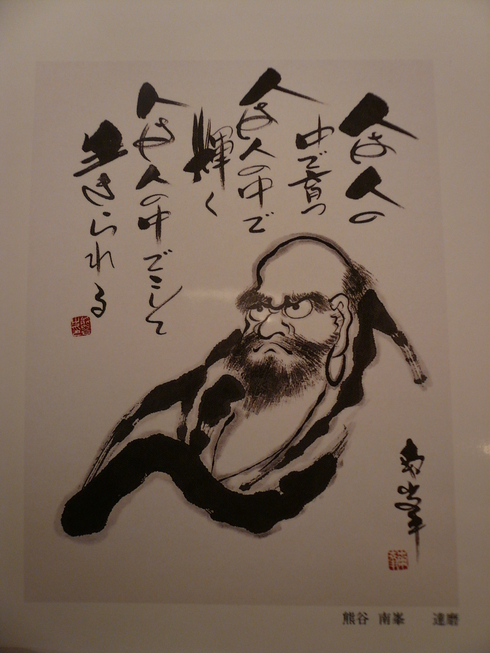 人は人の
中で育つ
人は人の中で
輝く
人は人の中でこそ
生きられる
南峯
熊谷 南峯 達磨